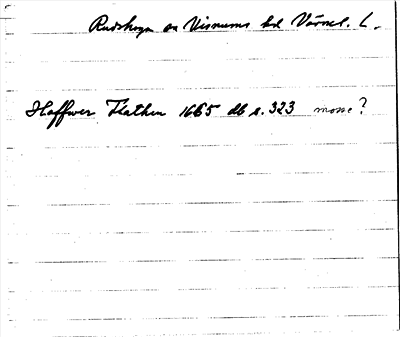 Rudskoga sn Visnums hd Värml. L.
Haffwer Kathen 1665 db s. 323 mosse?